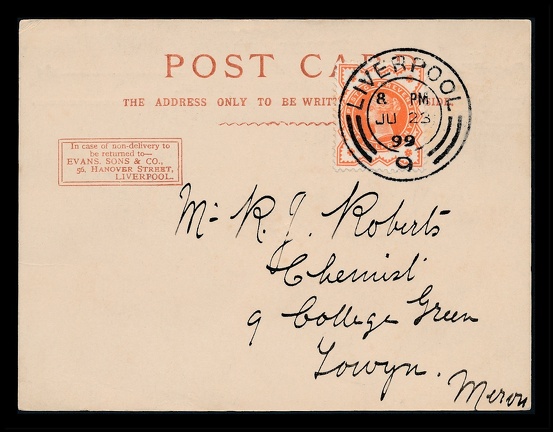 POST CARD
THE ADDRESS ONLY TO BE WRITTEN SIDE
LIVERPOOL
8 PM
JU 23
99
9
In case of non-delivery to
be returned to—
EVANS, SONS & CO.,
56, HANOVER STREET,
LIVERPOOL.
Mr R. J. Roberts
Chemist
9 College Green
Towyn.
Meron